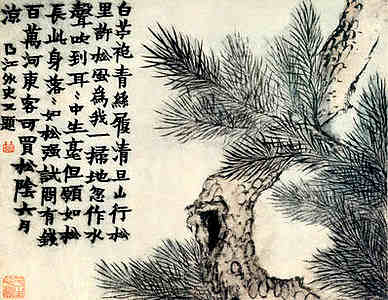 白苧袍青絲履清旦山行松
里許松風為我一掃地忽作水
聲吹到耳〻中生毫但願如松
長此身落〻如松强試問有錢
百萬河東客可買松陰六月
凉 江外史 題